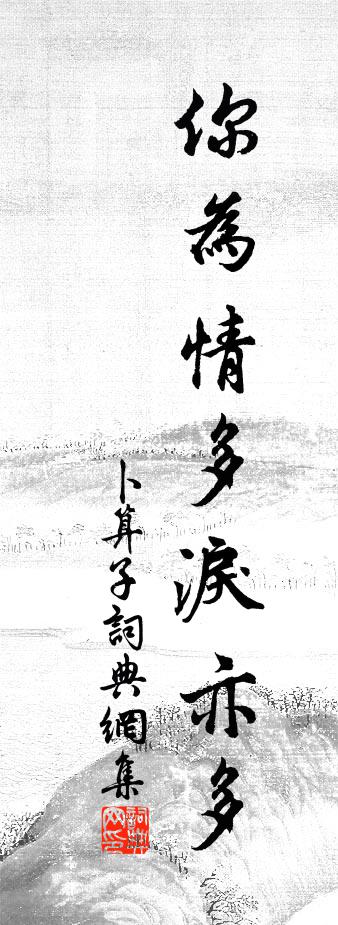 你為情多淚亦多
卜算子詞典網集
詞典网印